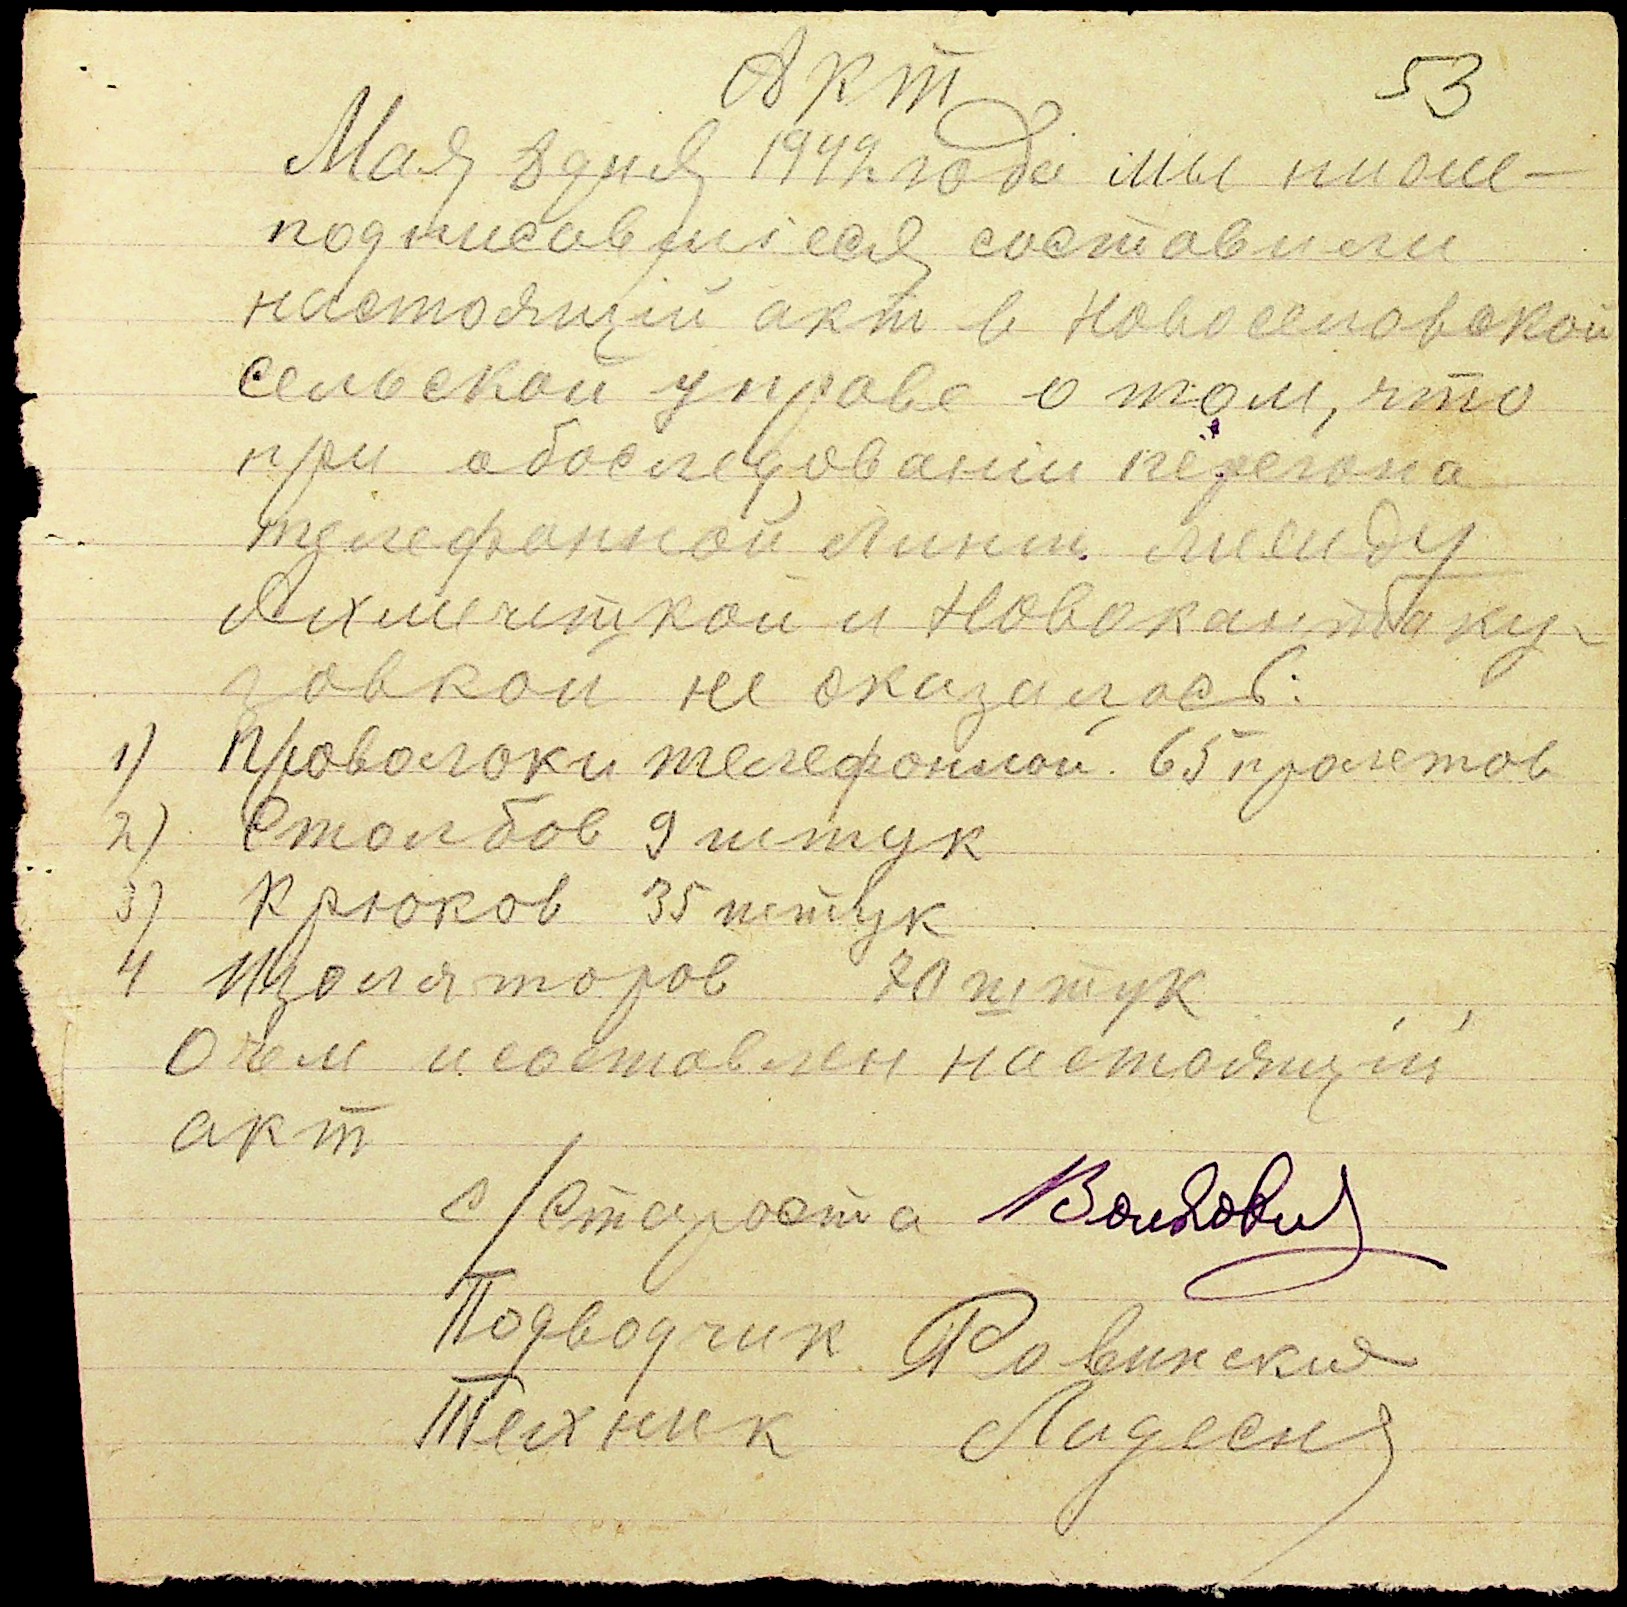 53
Акт
Мая 8 дня 1942 года мы ниже-
подписавшіеся составили
настоящій акт в Новоселовской
сельской управе о том, что
при обоследованіи перегона
телефонной линіи между
Ахмечеткой и Новокантаку-
зовкой не оказалось:
1) Проволоки телефонной 65 пролетов
2) Столбов 9 штук
3) Крюков 35 штук
4 Изоляторов 70 штук
О чем и составлен настоящій
акт
с/Староста
Подводчик Ровинский
Техник